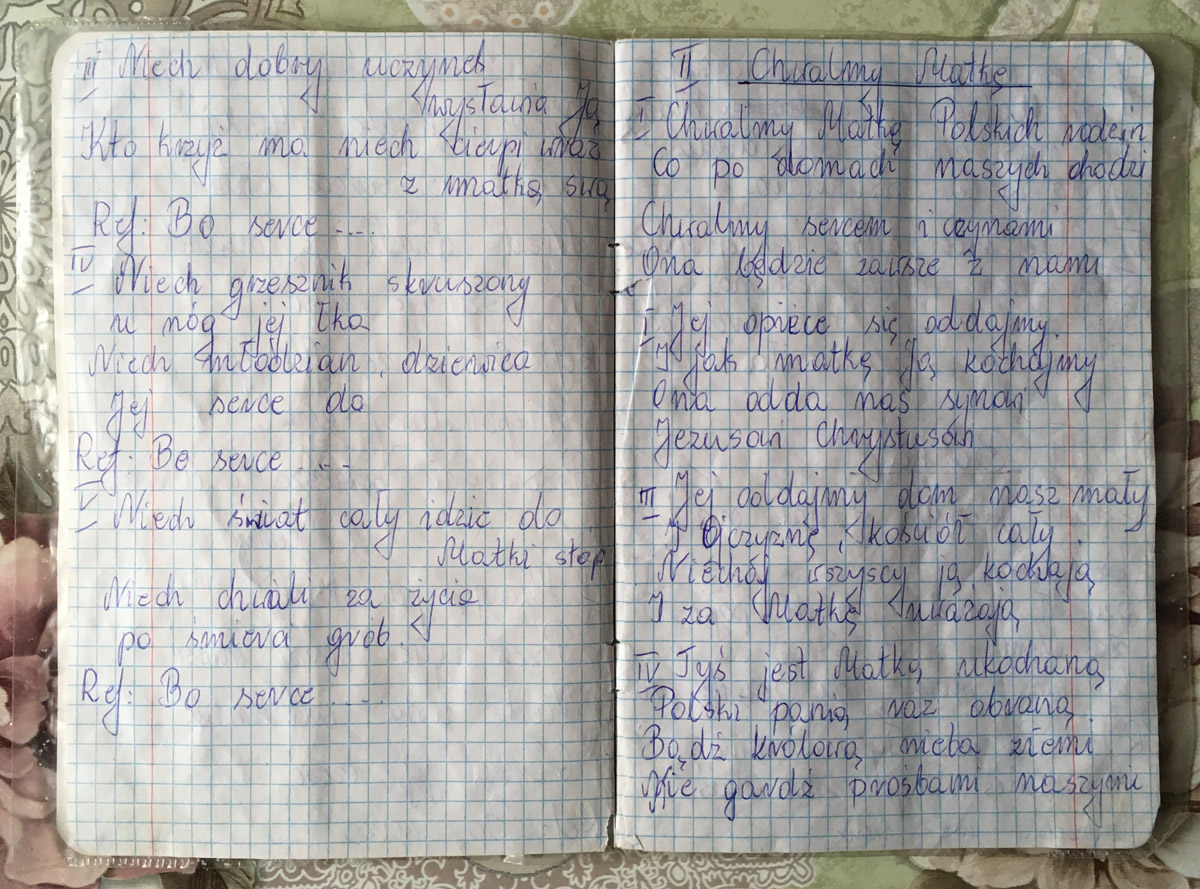 III Niech dobry uczynek
wysławia Ją
Kto krzyż ma niech cierpi wraz
z matką swą
Ref: Bo serce ....
IV
Niech grzesznik skruszony
u nóg jej łka
Niech młodzian, dziewica
Jej serce da
Ref: Bo serce ....
V Niech świat cały idzie do
Matki stóp
Niech chwali za życia
po śmierci grób.
Ref: Bo serce ....
II Chwalmy Matkę
I Chwalmy Matkę Polskich rodzin
Co po domach naszych chodzi
Chwalmy sercem i czynami
Ona będzie zawsze z nami
I Jej opiece się oddajmy.
I jak matkę Ją kochajmy
Ona odda nas synowi
Jezusowi Chrystusowi
III Jej oddajmy dom nasz mały
I Ojczyznę, kościół cały.
Niechaj wszyscy ją kochają
I za Matkę uważają
IV Tyś jest Matką ukochaną
Polski panią raz obraną
Bądź królową nieba ziemi
Nie gardź prośbami naszymi